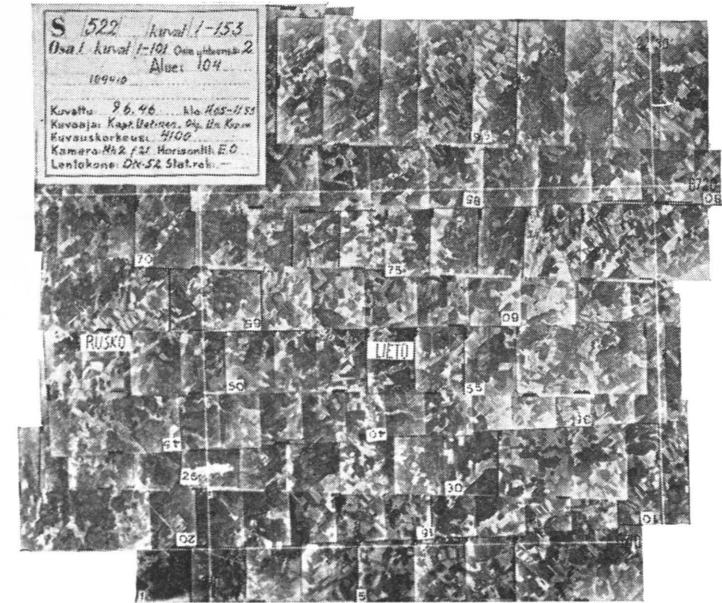 S 522 kuvat 1-153
Osa 1 kuvat 1-101 Osia yhteensä 2
Alue: 104
109410
Kuvattu 9.6.46 klo
Kuvaaja: Kapt.
Kuvauskorkeus: 4100
Kamera Horisontti E.O
Lentokone: DN-52 Stat.rek. —
95
85
6720
80
70
75
65
60
RUSKO
LIETO
50
55
45
40
35
25
30
20
15
10
1
5